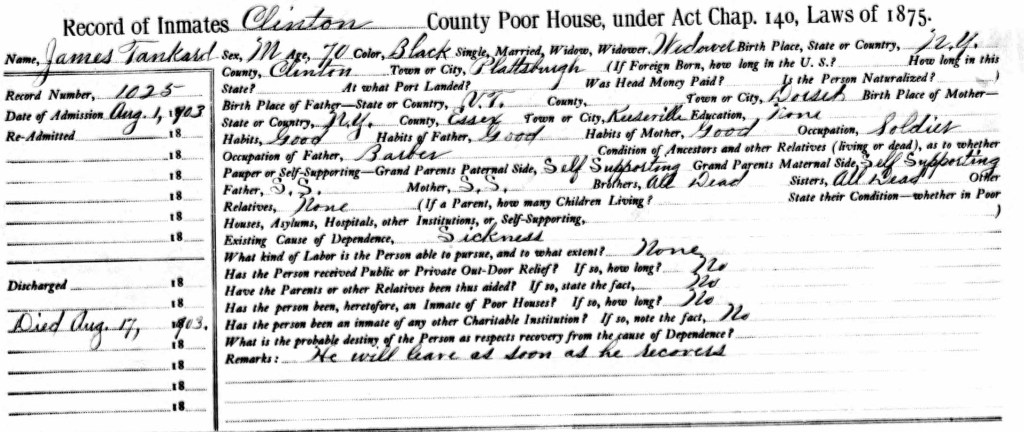 Record of Inmates Clinton County Poor House, under Act Chap. 140, Laws of 1875.
Name, James Tankard Sex, M Age, 70 Color, Black Single, Married, Widow, Widower, Widower Birth Place, State or Country, N.Y.
County, Clinton Town or City, Plattsburgh (If Foreign Born, how long in the U. S.? How long in this
State? At what Port Landed? Was Head Money Paid? Is the Person Naturalized? )
Birth Place of Father—State or Country, V.T. County, Town or City, Dorset Birth Place of Mother—
State or Country, N.Y. County, Essex Town or City, Keeseville Education, None
Habits, Good Habits of Father, Good Habits of Mother, Good Occupation, Soldier
Occupation of Father, Barber Condition of Ancestors and other Relatives (living or dead), as to whether
Pauper or Self-Supporting—Grand Parents Paternal Side, Self Supporting Grand Parents Maternal Side, Self Supporting
Father, S.S. Mother, S.S. Brothers, All Dead Sisters, All Dead Other
Relatives, None (If a Parent, how many Children Living? State their Condition—whether in Poor
Houses, Asylums, Hospitals, other Institutions, or Self-Supporting, )
Existing Cause of Dependence, Sickness
What kind of Labor is the Person able to pursue, and to what extent? None
Has the Person received Public or Private Out-Door Relief? If so, how long? No
Have the Parents or other Relatives been thus aided? If so, state the fact, No
Has the person been, heretofore, an Inmate of Poor Houses? If so, how long? No
Has the person been an inmate of any other Charitable Institution? If so, note the fact, No
What is the probable destiny of the Person as respects recovery from the cause of Dependence?
Remarks: He will leave as soon as he recovers
Record Number, 1025
Date of Admission Aug. 1, 1903
Re-Admitted 18
18
18
18
18
18
18
Discharged 18
18
Died Aug. 17, 1903.
18
18
18
18